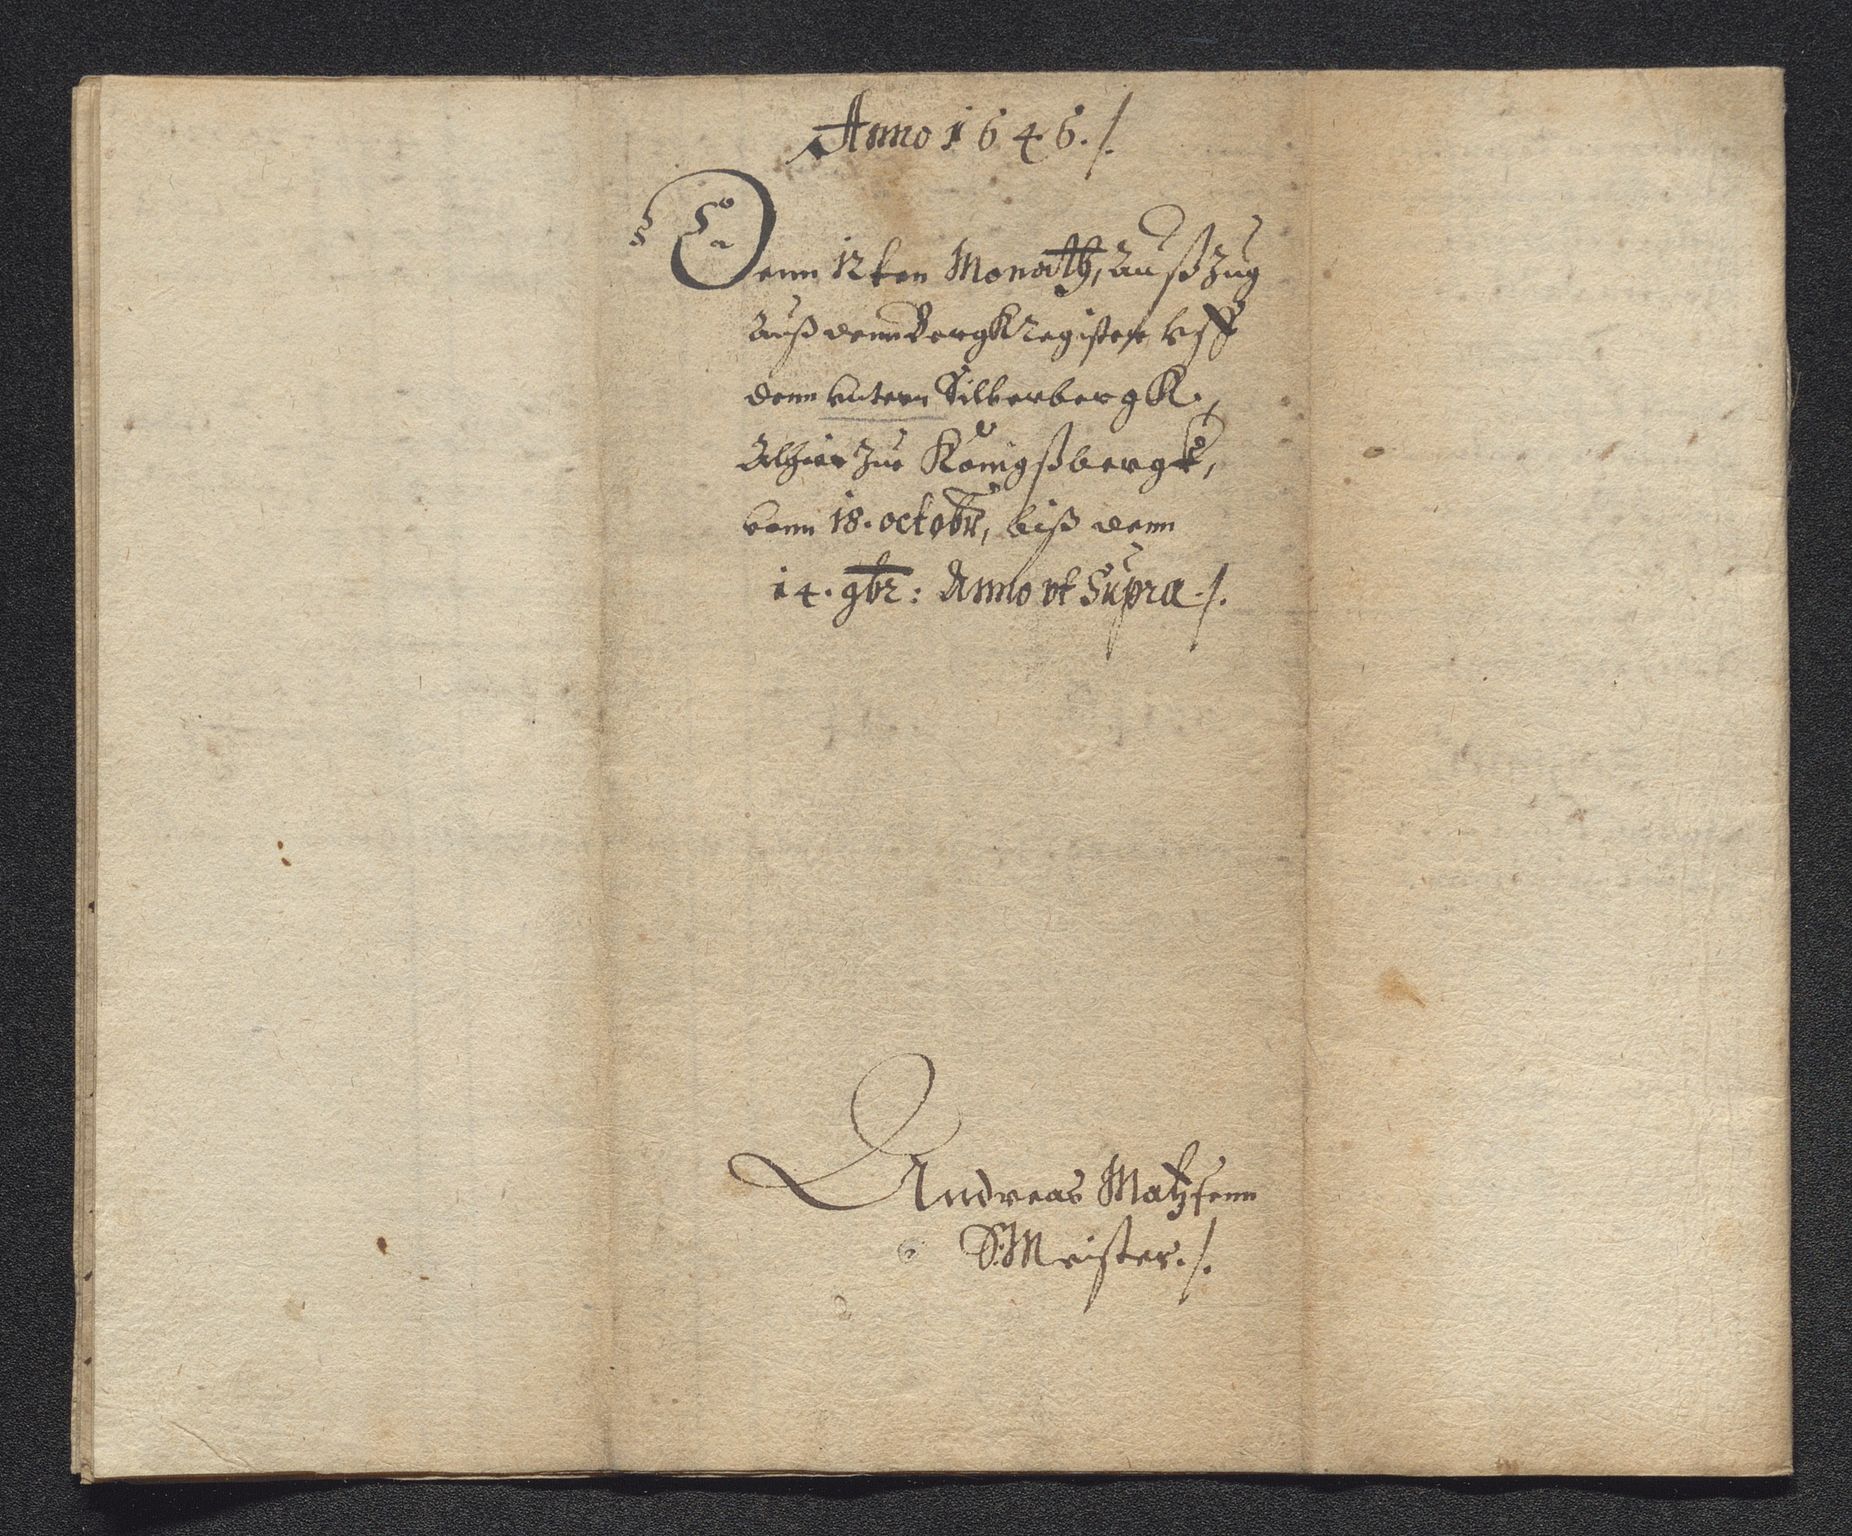 Anno 1646 ./.
Denn 12ten Monath, Außzug
Auß denn Bergkregister vff
denn vntern Silberbergk,
Alhier Zue Königßbergk,
vonn 18. octobr, biß denn
14. 9br: Anno vt Supra ./.
Andreas Matzfenn
S: Meister ./.